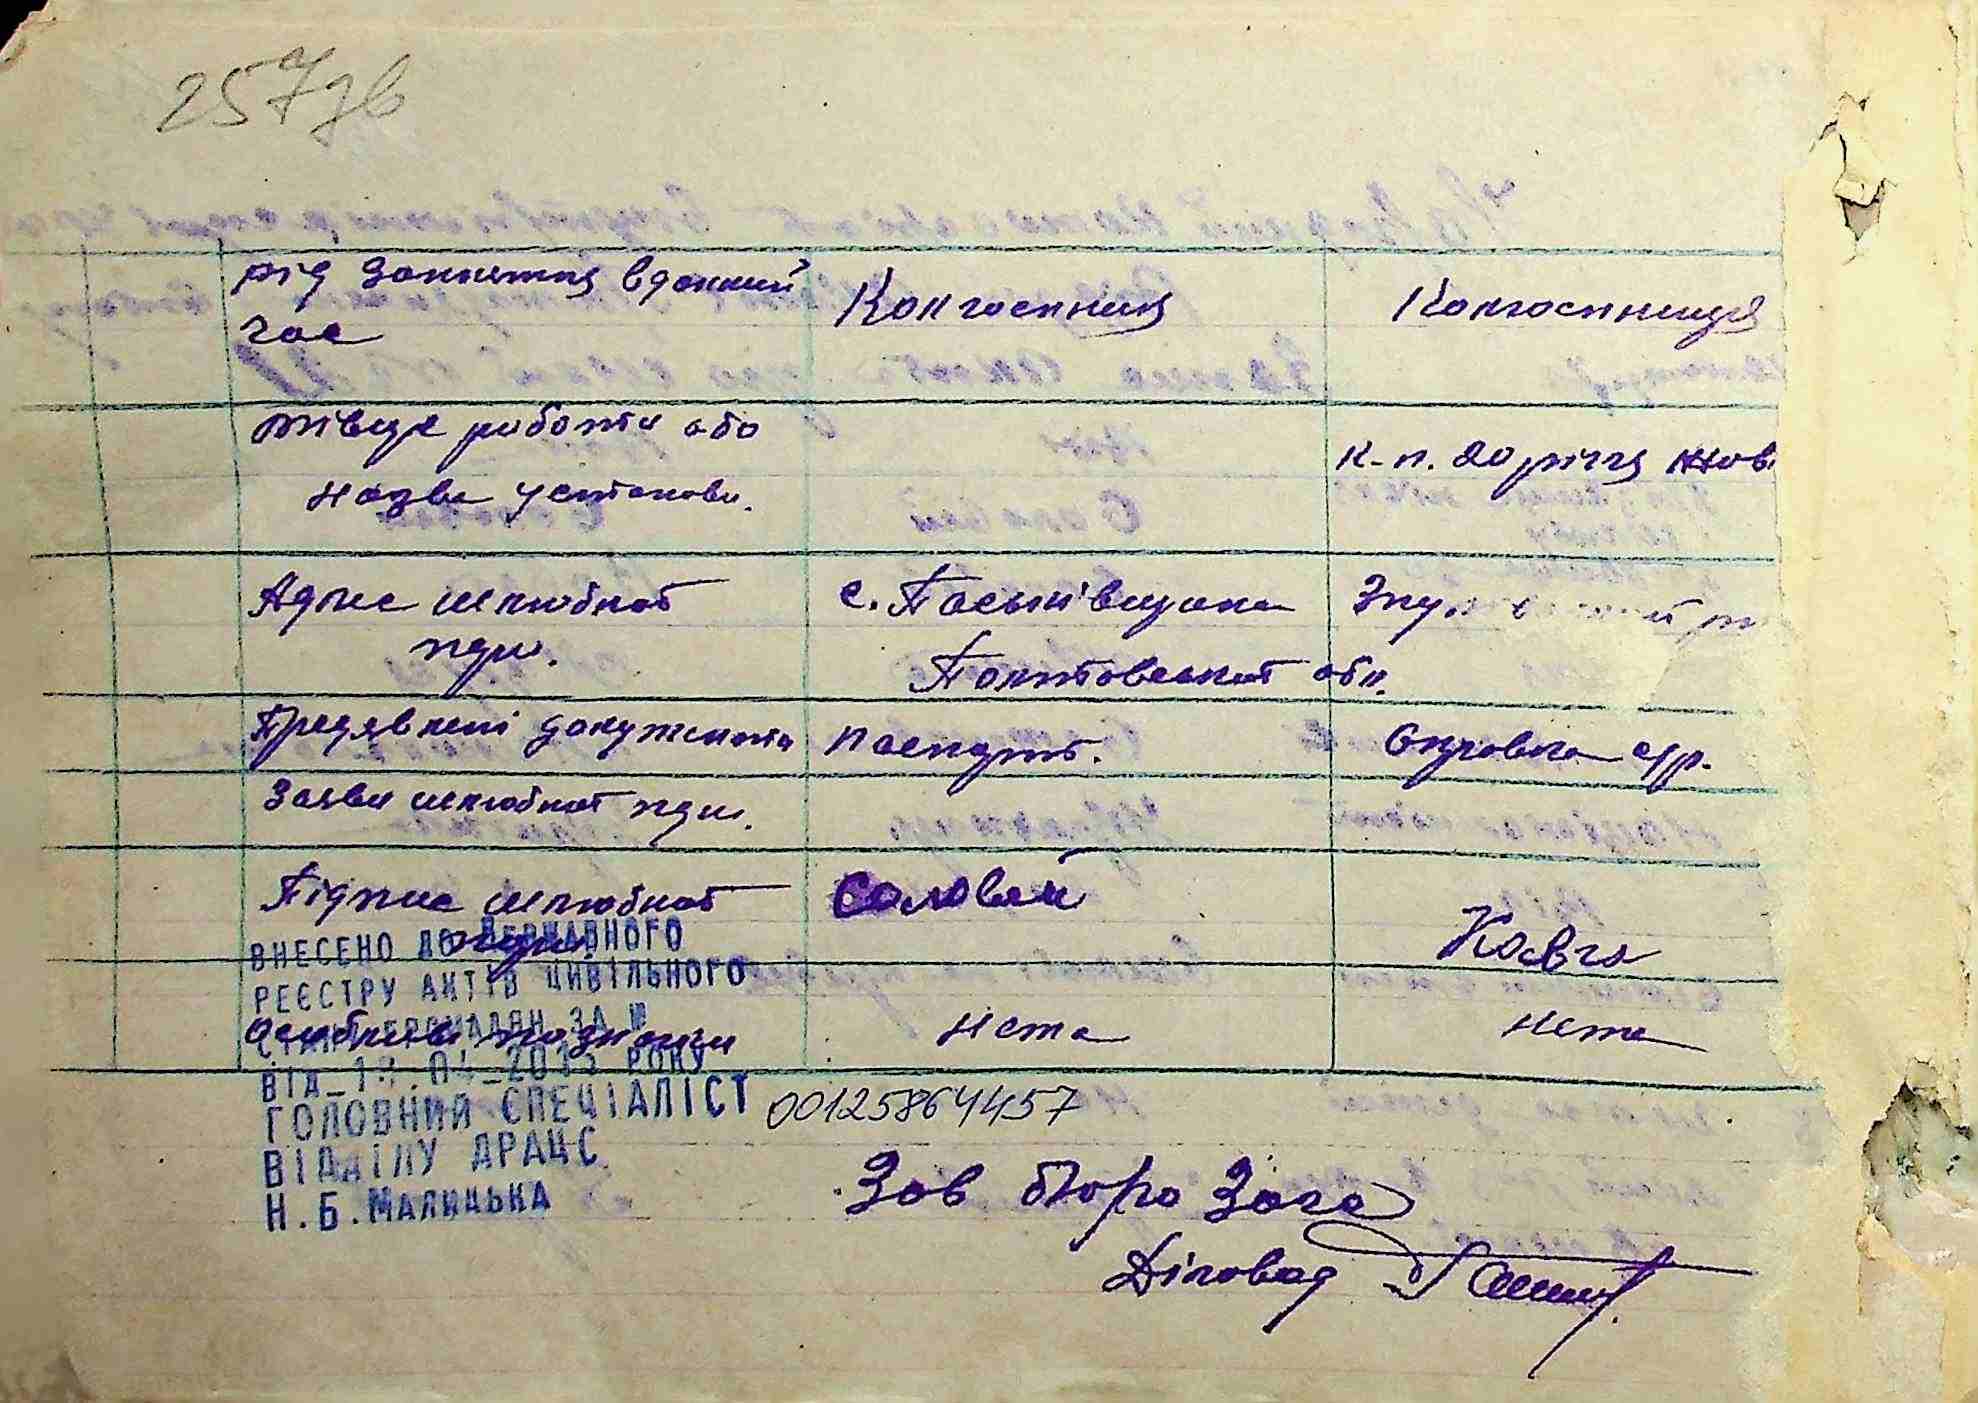 257зв
рід заняття в даний
час
Колгоспник
Колгоспниця
місце роботи або
назва установи.
к-п. 20 річчя Жов
Адрес шлюбної
пари.
с. Паськівщина
Полтовської обл.
Предявлені документи
паспорт.
Справка с/р.
Заяви шлюбної пари.
Підпис шлюбної
пари.
Соловей
Кавга
Особливі познаки
Нема
Нема
ВНЕСЕНО ДО ДЕРЖАВНОГО
РЕЄСТРУ АКТІВ ЦИВІЛЬНОГО
СТАНУ ГРОМАДЯН ЗА №
ВІД РОКУ
ГОЛОВНИЙ СПЕЦІАЛІСТ
ВІДДІЛУ ДРАЦС
Н.Б.МАЛИЦЬКА
00125864457
Зав бюро Загса
Діловод